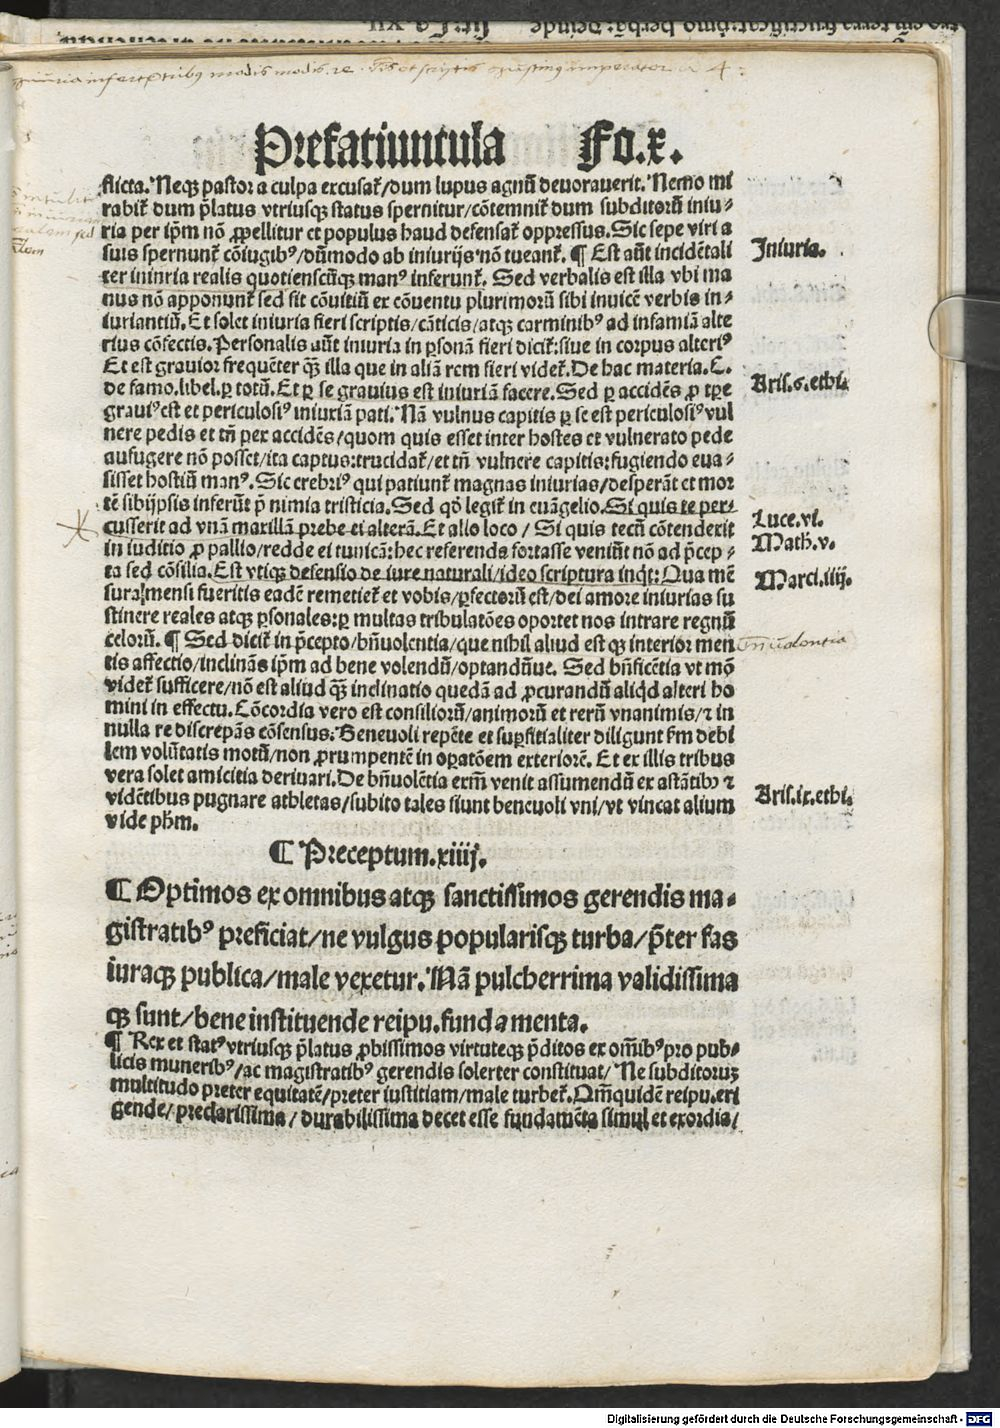 Prefatiuntula Fo.x.
flicta. Neqꝫ pastor a culpa excusat᷑/dum lupus agnū deuorauerit. Nemo mi
rabit᷑ dum p̄latus vtriusqꝫ status spernitur/cōtemnit᷑ dum subditorū iniu⸗
ria per ip̄m nō ꝓpellitur et populus haud defensat᷑ oppressus. Sic sepe viri a
suis spernunt᷑ cōiugibꝰ/dūmodo ab iniurijs nō tueant᷑. ¶ Est aūt incidētali
ter iniuria realis quotienscūqꝫ manꝰ inferunt᷑. Sed verbalis est illa vbi ma
nus nō apponunt᷑ sed fit cōuitiū ex cōuentu plurimorū sibi inuicē verbis in⸗
iuriantiū. Et solet iniuria fieri scriptis/cāticis/atqꝫ carminibꝰ ad infamiā alte
rius cōfectis. Personalis aūt iniuria in ꝑsonā fieri dicit᷑: siue in corpus alteriꝰ
Et est grauior frequēter qꝫ̄ illa que in aliā rem fieri videt᷑. De hac materia. C.
de famo. libel. ꝑ totū. Et ꝑ se grauius est iniuriā facere. Sed ꝑ accidēs ꝓ tp̄e
grauiꝰ est et periculosiꝰ iniuriā pati. Nā vulnus capitis ꝑ se est periculosiꝰ vul
nere pedis et tn̄ per accidēs/quom quis esset inter hostes et vulnerato pede
aufugere nō posset/ita captus: trucidat᷑/et tn̄ vulnere capitis: fugiendo eua⸗
sisset hostiū manꝰ. Sic crebriꝰ qui patiunt᷑ magnas iniurias/desperāt et mor
tē sibijpsis inferūt p̄ nimia tristicia. Sed qd̓ legit᷑ in euāgelio. Si quis te per⸗
cusserit ad vnā maxillā prebe ei alterā. Et alio loco/ Si quis tecū cōtenderit
in iuditio ꝓ pallio/redde ei tunicā: hec referenda fortasse veniūt nō ad p̄cep⸗
ta sed cōsilia. Est vtiqꝫ defensio de iure naturali/ideo scriptura inqt: Qua mē
sura mensi fueritis eadē remetiet᷑ et vobis/ꝑfectorū est/dei amore iniurias su
stinere reales atqꝫ ꝑsonales: ꝑ multas tribulatōes oportet nos intrare regnū
celorū. ¶ Sed dicit᷑ in p̄cepto/bn̄uolentia/que nihil aliud est qꝫ interior men
tis affectio/inclinās ip̄m ad bene volendū/optandūue. Sed bn̄ficētia vt mō
videt᷑ sufficere/nō est aliud qꝫ̄ inclinatio quedā ad ꝓcurandū aliqd alteri ho
mini in effectu. Cōcordia vero est consiliorū/animorū et rerū vnanimis/⁊ in
nulla re discrepās cōsensus. Beneuoli repēte et suꝑfitialiter diligunt fm̄ debi
lem volūtatis motū/non ꝓrumpentē in oꝑatōem exteriorē. Et ex illis tribus
vera solet amicitia deriuari. De bn̄uolētia exm̄ venit assumendū ex astātibꝰ ⁊
vidētibus pugnare athletas/subito tales fiunt beneuoli vni/vt vincat alium
vide ph̄m.
¶ Preceptum.xiiij.
¶ Optimos ex omnibus atqꝫ sanctissimos gerendis ma⸗
gistratibꝰ preficiat/ne vulgus popularisqꝫ turba/p̄ter fas
iuraqꝫ publica/male vexetur. Nā pulcherrima validissima
qꝫ sunt/bene instituende reipu. fundamenta.
¶ Rex et statꝰ vtriusqꝫ p̄latus ꝓbissimos virtuteqꝫ p̄ditos ex om̄ibꝰ pro pub⸗
licis muneribꝰ/ac magistratibꝰ gerendis solerter constituat/ Ne subditoruꝫ
multitudo preter equitatē/preter iustitiam/male turbet᷑. Qm̄quidē reipu. eri
gende/preclarissima/durabilissima decet esse fundamēta simul et exordia/
Iniuria.
Aris.5.ethi.
Luce.vi.
Math.v.
Marci.iiij.
Aris.ix.ethi.
Digitalisierung gefördert durch die Deutsche Forschungsgemeinschaft - DFG